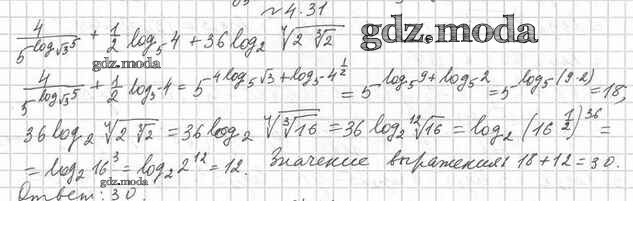 N 4.31
4/5^{log_{√3}5} + 1/2 log_5 4 + 36 log_2 ∜(2 ∛2) gdz.moda
gdz.moda
4/5^{log_{√3}5} + 1/2 log_5 4 = 5^{4 log_5 √3 + log_5 4^{1/2}} = 5^{log_5 9 + log_5 2} = 5^{log_5 (9·2)} = 18,
36 log_2 ∜(2 ∛2) = 36 log_2 ∜(∛16) = 36 log_2 ¹²√16 = log_2 (16^{1/2})^{36} =
= log_2 16^3 = log_2 2^{12} = 12. Значение выражения 18 + 12 = 30.
gdz.moda
Ответ: 30.